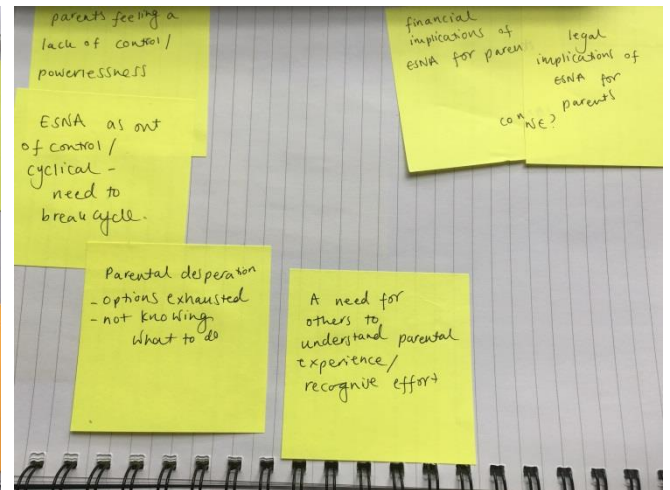 parents feeling a
lack of control/
powerlessness
ESNA as out
of control/
cyclical -
need to
break cycle.
Parental desperation
- options exhausted
- not knowing
what to do
A need for
others to
understand parental
experience/
recognise effort
financial
implications of
ESNA for paren
legal
implications of
ESNA for
parents